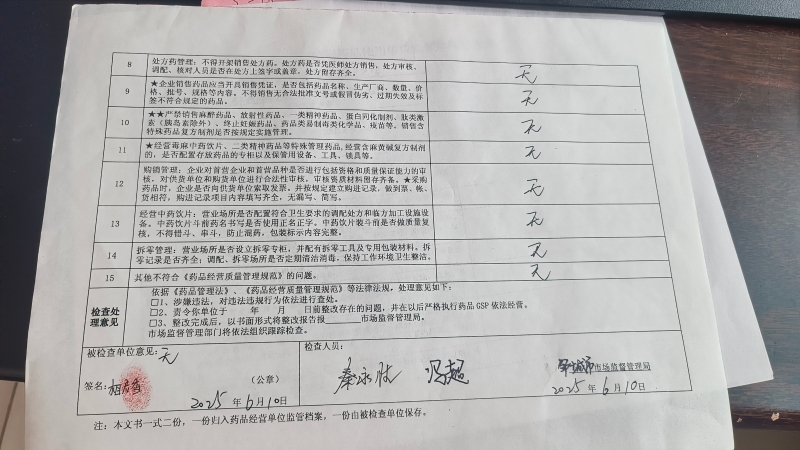 8 处方药管理：不得开架销售处方药。处方药是否凭医师处方销售，处方审核、
调配、核对人员是否在处方上签字或盖章，处方留存齐全。
无
9 ★企业销售药品应当开具销售凭证，是否包括药品名称、生产厂商、数量、价
格、批号、规格等内容。不得销售无合法批准文号或假冒伪劣、过期失效及标
签不符合规定的药品。
无
10 ★★严禁销售麻醉药品、放射性药品、一类精神药品、蛋白同化制剂、肽类激
素（胰岛素除外）、终止妊娠药品、药品类易制毒类化学品、疫苗等。销售含
特殊药品复方制剂是否按规定实施管理。
无
11 ★经营毒麻中药饮片、二类精神药品等特殊管理药品，经营含麻黄碱复方制剂
的，是否配置存放药品的专柜以及保管用设备、工具、锁具等。
无
12 购销管理：企业对首营企业和首营品种是否进行包括资格和质量保证能力的审
核，对供货单位和购货单位进行合法性审核。审核资质材料留存齐备。★采购
药品时，企业是否向供货单位索取发票。并按规定建立购进记录，做到票、帐、
货相符，购进记录项目内容填写齐全，无漏写、简写。
无
13 经营中药饮片：营业场所是否配置符合卫生要求的调配处方和临方加工设施设
备。中药饮片斗前药名书写是否使用正名正字。中药饮片装斗前是否做质量复
核，不得错斗、串斗，防止混药。包装标示内容完整。
无
14 拆零管理：营业场所是否设立拆零专柜，并配有拆零工具及专用包装材料。拆
零记录是否齐全；调配、拆零场所是否定期清洁消毒，保持工作环境卫生整洁。
无
15 其他不符合《药品经营质量管理规范》的问题。
无
检查处
理意见
依据《药品管理法》、《药品经营质量管理规范》等法律法规，处理意见如下：
□1、涉嫌违法，对违法违规行为依法进行查处。
□2、责令你单位于 年 月 日前整改存在的问题，并在以后严格执行药品 GSP 依法经营。
□3、整改完成后，以书面形式将整改报告报________市场监督管理局。
市场监督管理部门将依法组织跟踪检查。
被检查单位意见：无
签名：
（公章）
2025 年 6 月 10 日
检查人员：
秦永胜 冯超
邹城市市场监督管理局
2025 年 6 月 10 日
注：本文书一式二份，一份归入药品经营单位监管档案，一份由被检查单位保存。